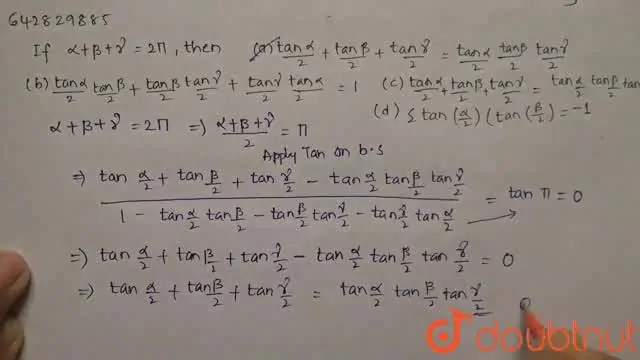 642829885
If α+β+γ = 2π, then (a) tan α/2 + tan β/2 + tan γ/2 = tan α/2 tan β/2 tan γ/2
(b) tan α/2 tan β/2 + tan β/2 tan γ/2 + tan γ/2 tan α/2 = 1 (c) tan α/2 + tan β/2 + tan γ/2 = tan α/2 tan β/2 tan
α+β+γ = 2π ⇒ α+β+γ/2 = π (d) Σ tan(α/2)(tan(β/2) = -1
Apply Tan on b.s
⇒ tan α/2 + tan β/2 + tan γ/2 - tan α/2 tan β/2 tan γ/2 / 1 - tan α/2 tan β/2 - tan β/2 tan γ/2 - tan γ/2 tan α/2 = tan π = 0
⇒ tan α/2 + tan β/2 + tan γ/2 - tan α/2 tan β/2 tan γ/2 = 0
⇒ tan α/2 + tan β/2 + tan γ/2 = tan α/2 tan β/2 tan γ/2
doubtnut